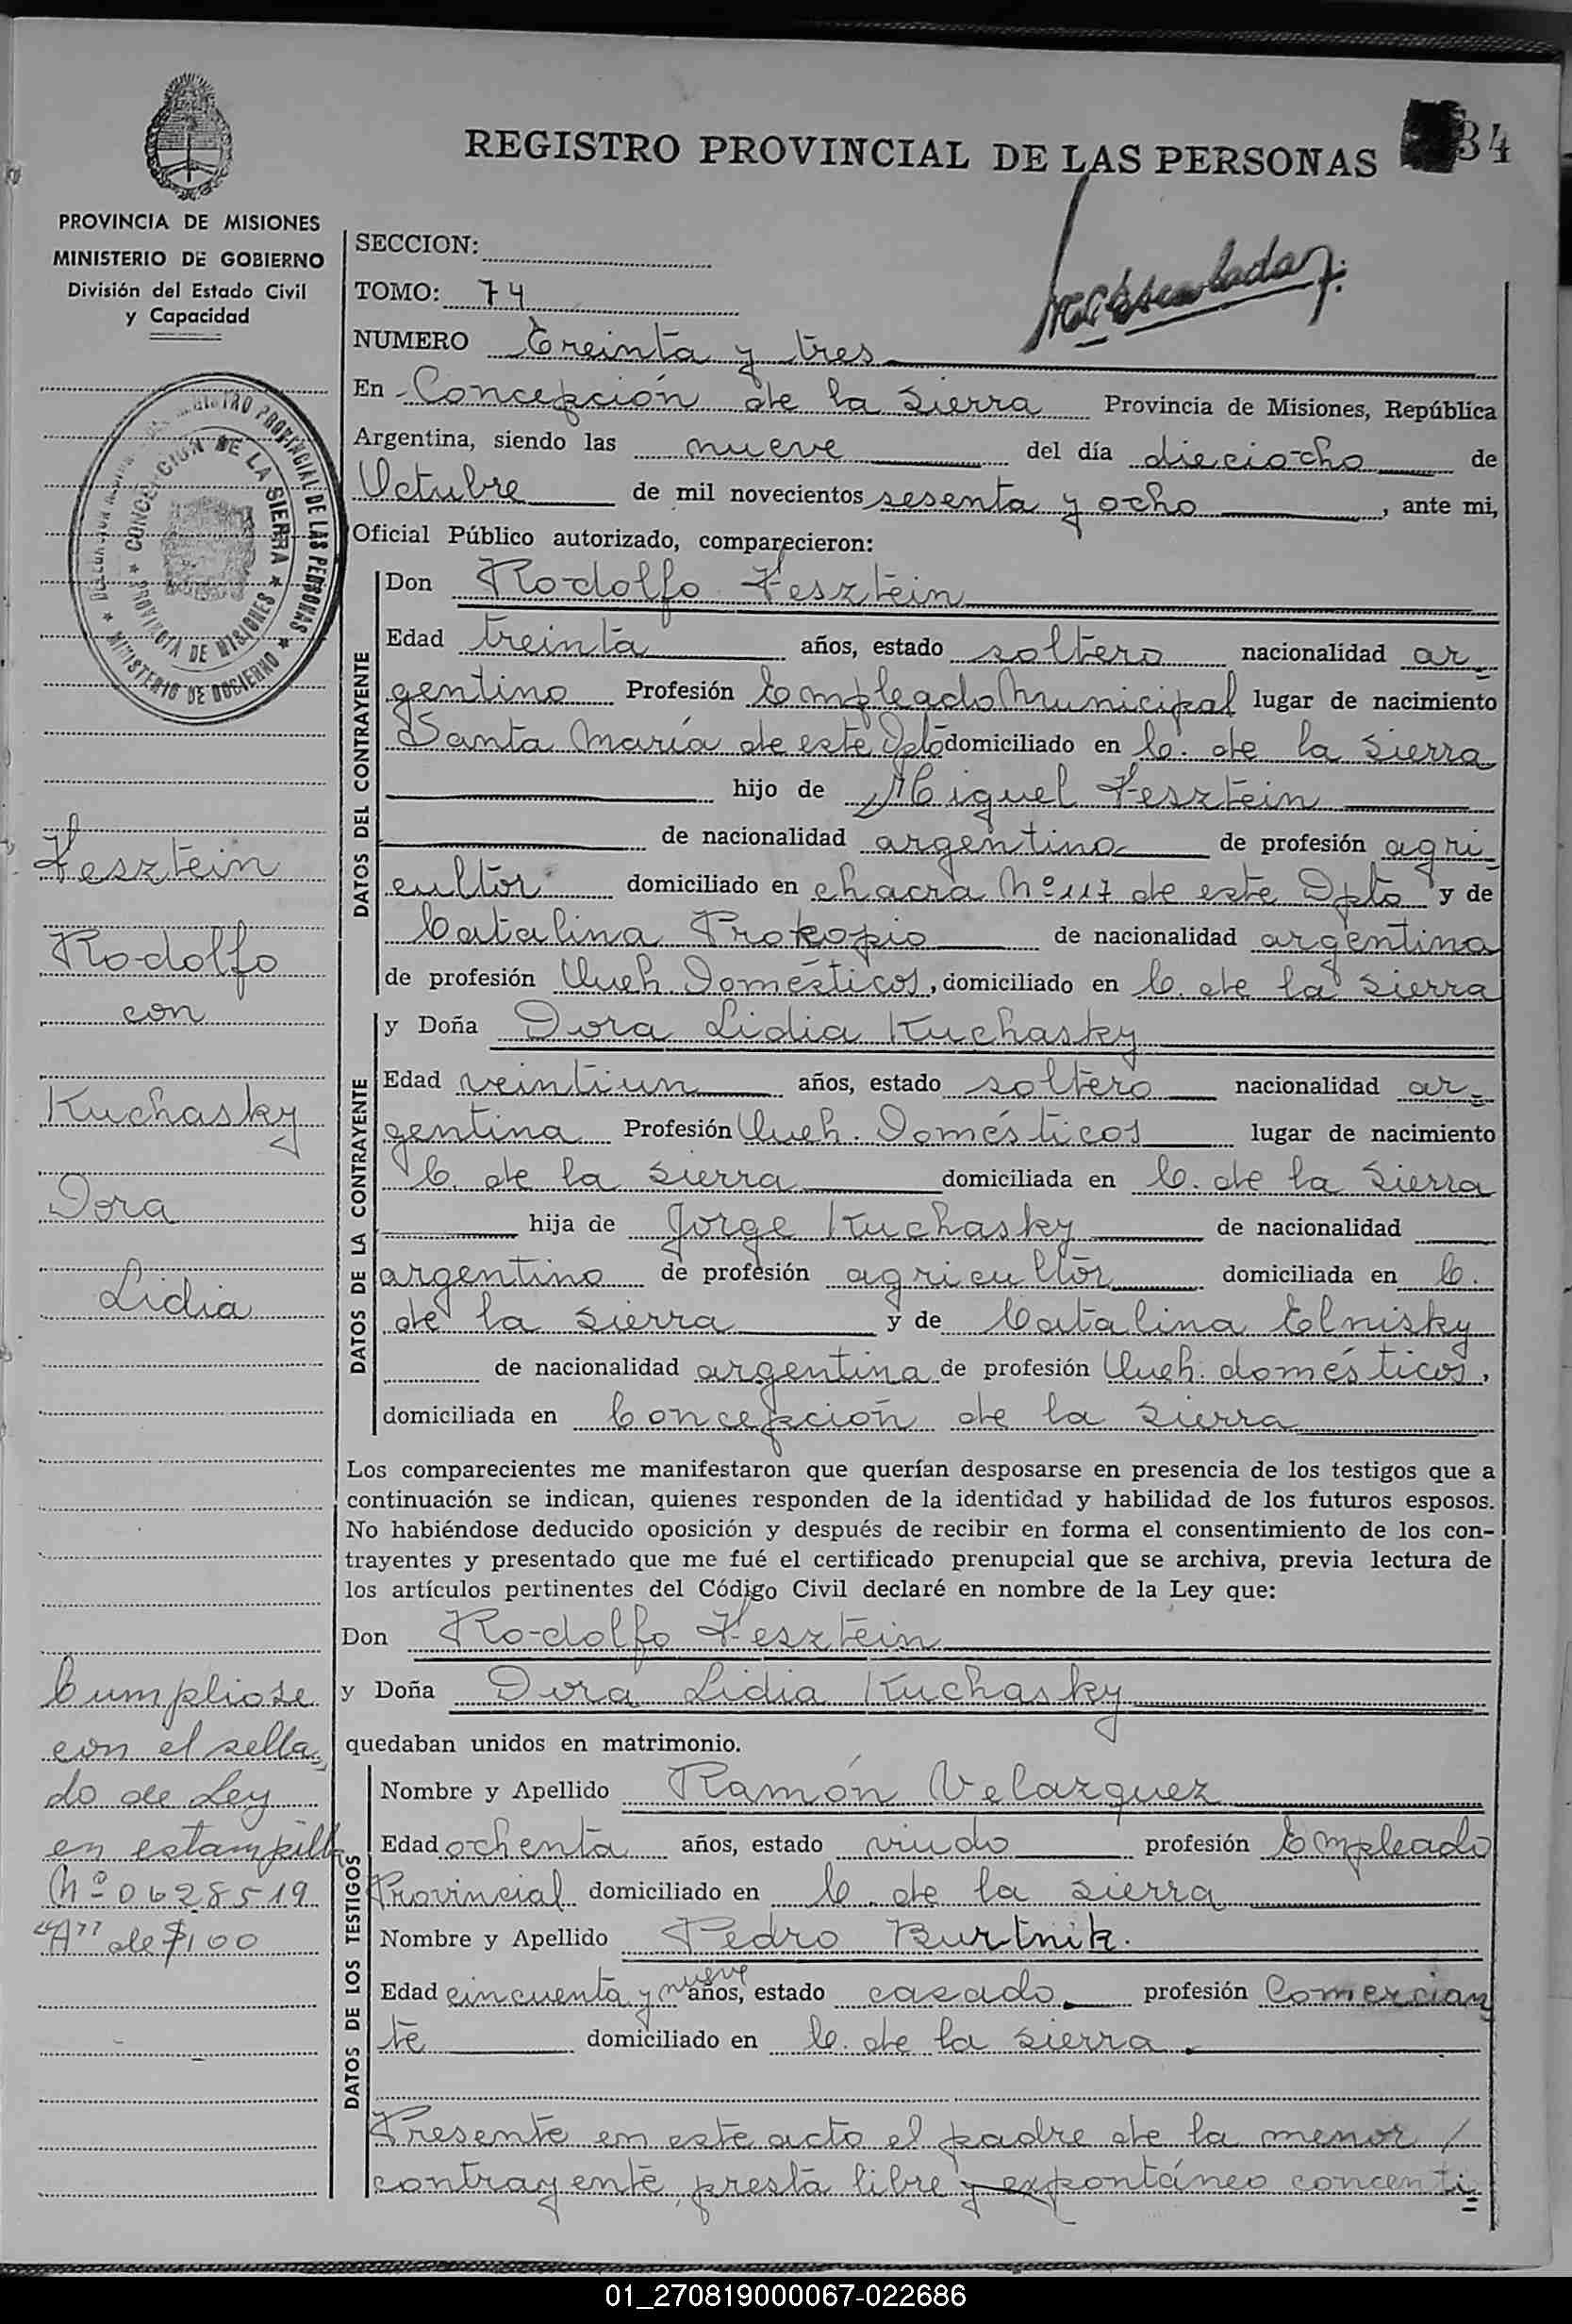 REGISTRO PROVINCIAL DE LAS PERSONAS 34
PROVINCIA DE MISIONES
MINISTERIO DE GOBIERNO
División del Estado Civil
y Capacidad
SECCION:
TOMO: 74
NUMERO Treinta y tres
En Concepción de la Sierra Provincia de Misiones, República
Argentina, siendo las nueve del día dieciocho de
Octubre de mil novecientos sesenta y ocho, ante mi,
Oficial Público autorizado, comparecieron:
REGISTRO PROVINCIAL DE LAS PERSONAS * MINISTERIO DE GOBIERNO *
CONCEPCION DE LA SIERRA * PROVINCIA DE MISIONES *
DATOS DEL CONTRAYENTE
Don Rodolfo Fesztein
Edad treinta años, estado soltero nacionalidad ar-
gentino Profesión Empleado Municipal lugar de nacimiento
Santa María de este Dpto domiciliado en C. de la Sierra
hijo de Miguel Fesztein
de nacionalidad argentino de profesión agri-
cultor domiciliado en chacra Nº 117 de este Dpto y de
Catalina Prokopio de nacionalidad argentina
de profesión Queh. Domésticos, domiciliado en C. de la Sierra
DATOS DE LA CONTRAYENTE
y Doña Dora Lidia Kuchasky
Edad veintiun años, estado soltero nacionalidad ar-
gentina Profesión Queh. Domésticos lugar de nacimiento
C. de la Sierra domiciliada en C. de la Sierra
hija de Jorge Kuchasky de nacionalidad
argentino de profesión agricultor domiciliada en C.
de la Sierra y de Catalina Elnisky
de nacionalidad argentina de profesión Queh. domésticos,
domiciliada en Concepción de la Sierra
Los comparecientes me manifestaron que querían desposarse en presencia de los testigos que a
continuación se indican, quienes responden de la identidad y habilidad de los futuros esposos.
No habiéndose deducido oposición y después de recibir en forma el consentimiento de los con-
trayentes y presentado que me fué el certificado prenupcial que se archiva, previa lectura de
los artículos pertinentes del Código Civil declaré en nombre de la Ley que:
Don Rodolfo Fesztein
y Doña Dora Lidia Kuchasky
quedaban unidos en matrimonio.
DATOS DE LOS TESTIGOS
Nombre y Apellido Ramón Velazquez
Edad ochenta años, estado viudo profesión Empleado
Provincial domiciliado en C. de la Sierra
Nombre y Apellido Pedro Burtnik.
Edad cincuenta y nueve años, estado casado profesión Comercian
te domiciliado en C. de la Sierra
Presente en este acto el padre de la menor /
contrayente, presta libre y expontáneo concenti=
Fesztein
Rodolfo
con
Kuchasky
Dora
Lidia
Cumpliose
con el sella
do de Ley
en estampilla
Nº 0628519
"A" de $100
01_270819000067-022686